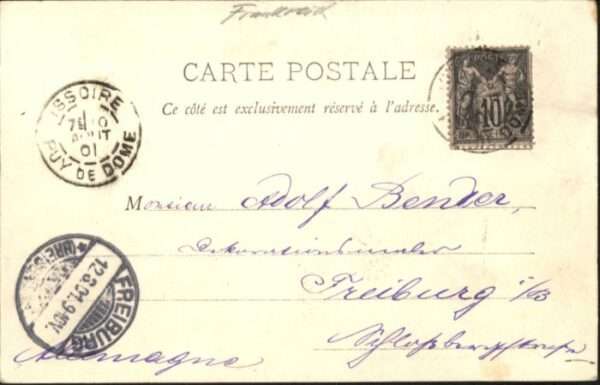 Frankreich
CARTE POSTALE
Ce côté est exclusivement réservé à l'adresse.
10
ISSOIRE
AOUT
01
PUY DE DOME
Monsieur Adolf Bender,
Dekorationsmaler
Freiburg i/B
Schloßbergstraße
Allemagne
FREIBURG
12.8.01.9-10V.
(BREISGAU)